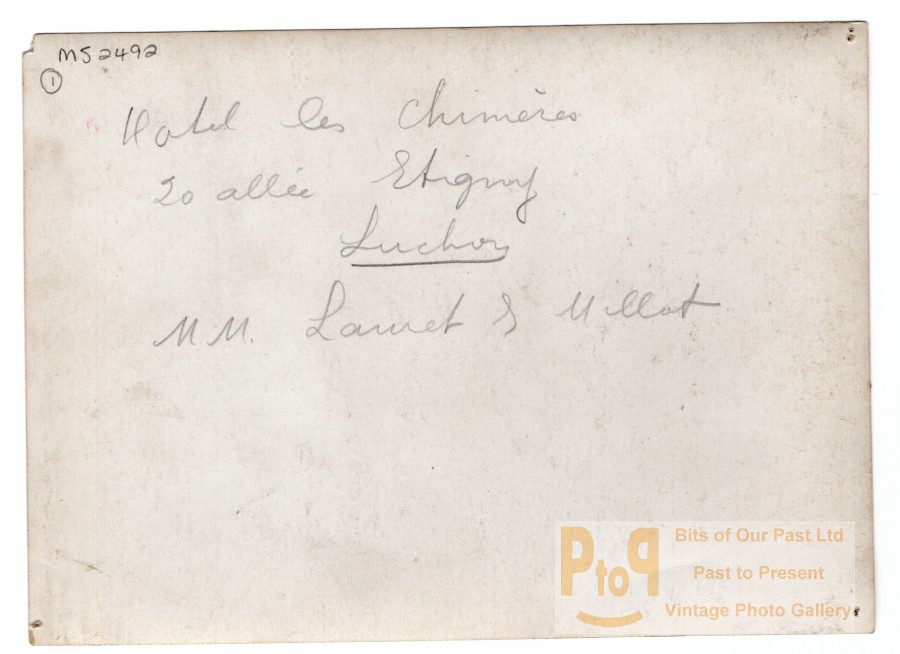 MS2492
1
Hotel les Chimères
20 allée Etigny
Luchon
MM. Lauret & Millot
PtoP
Bits of Our Past Ltd
Past to Present
Vintage Photo Gallery